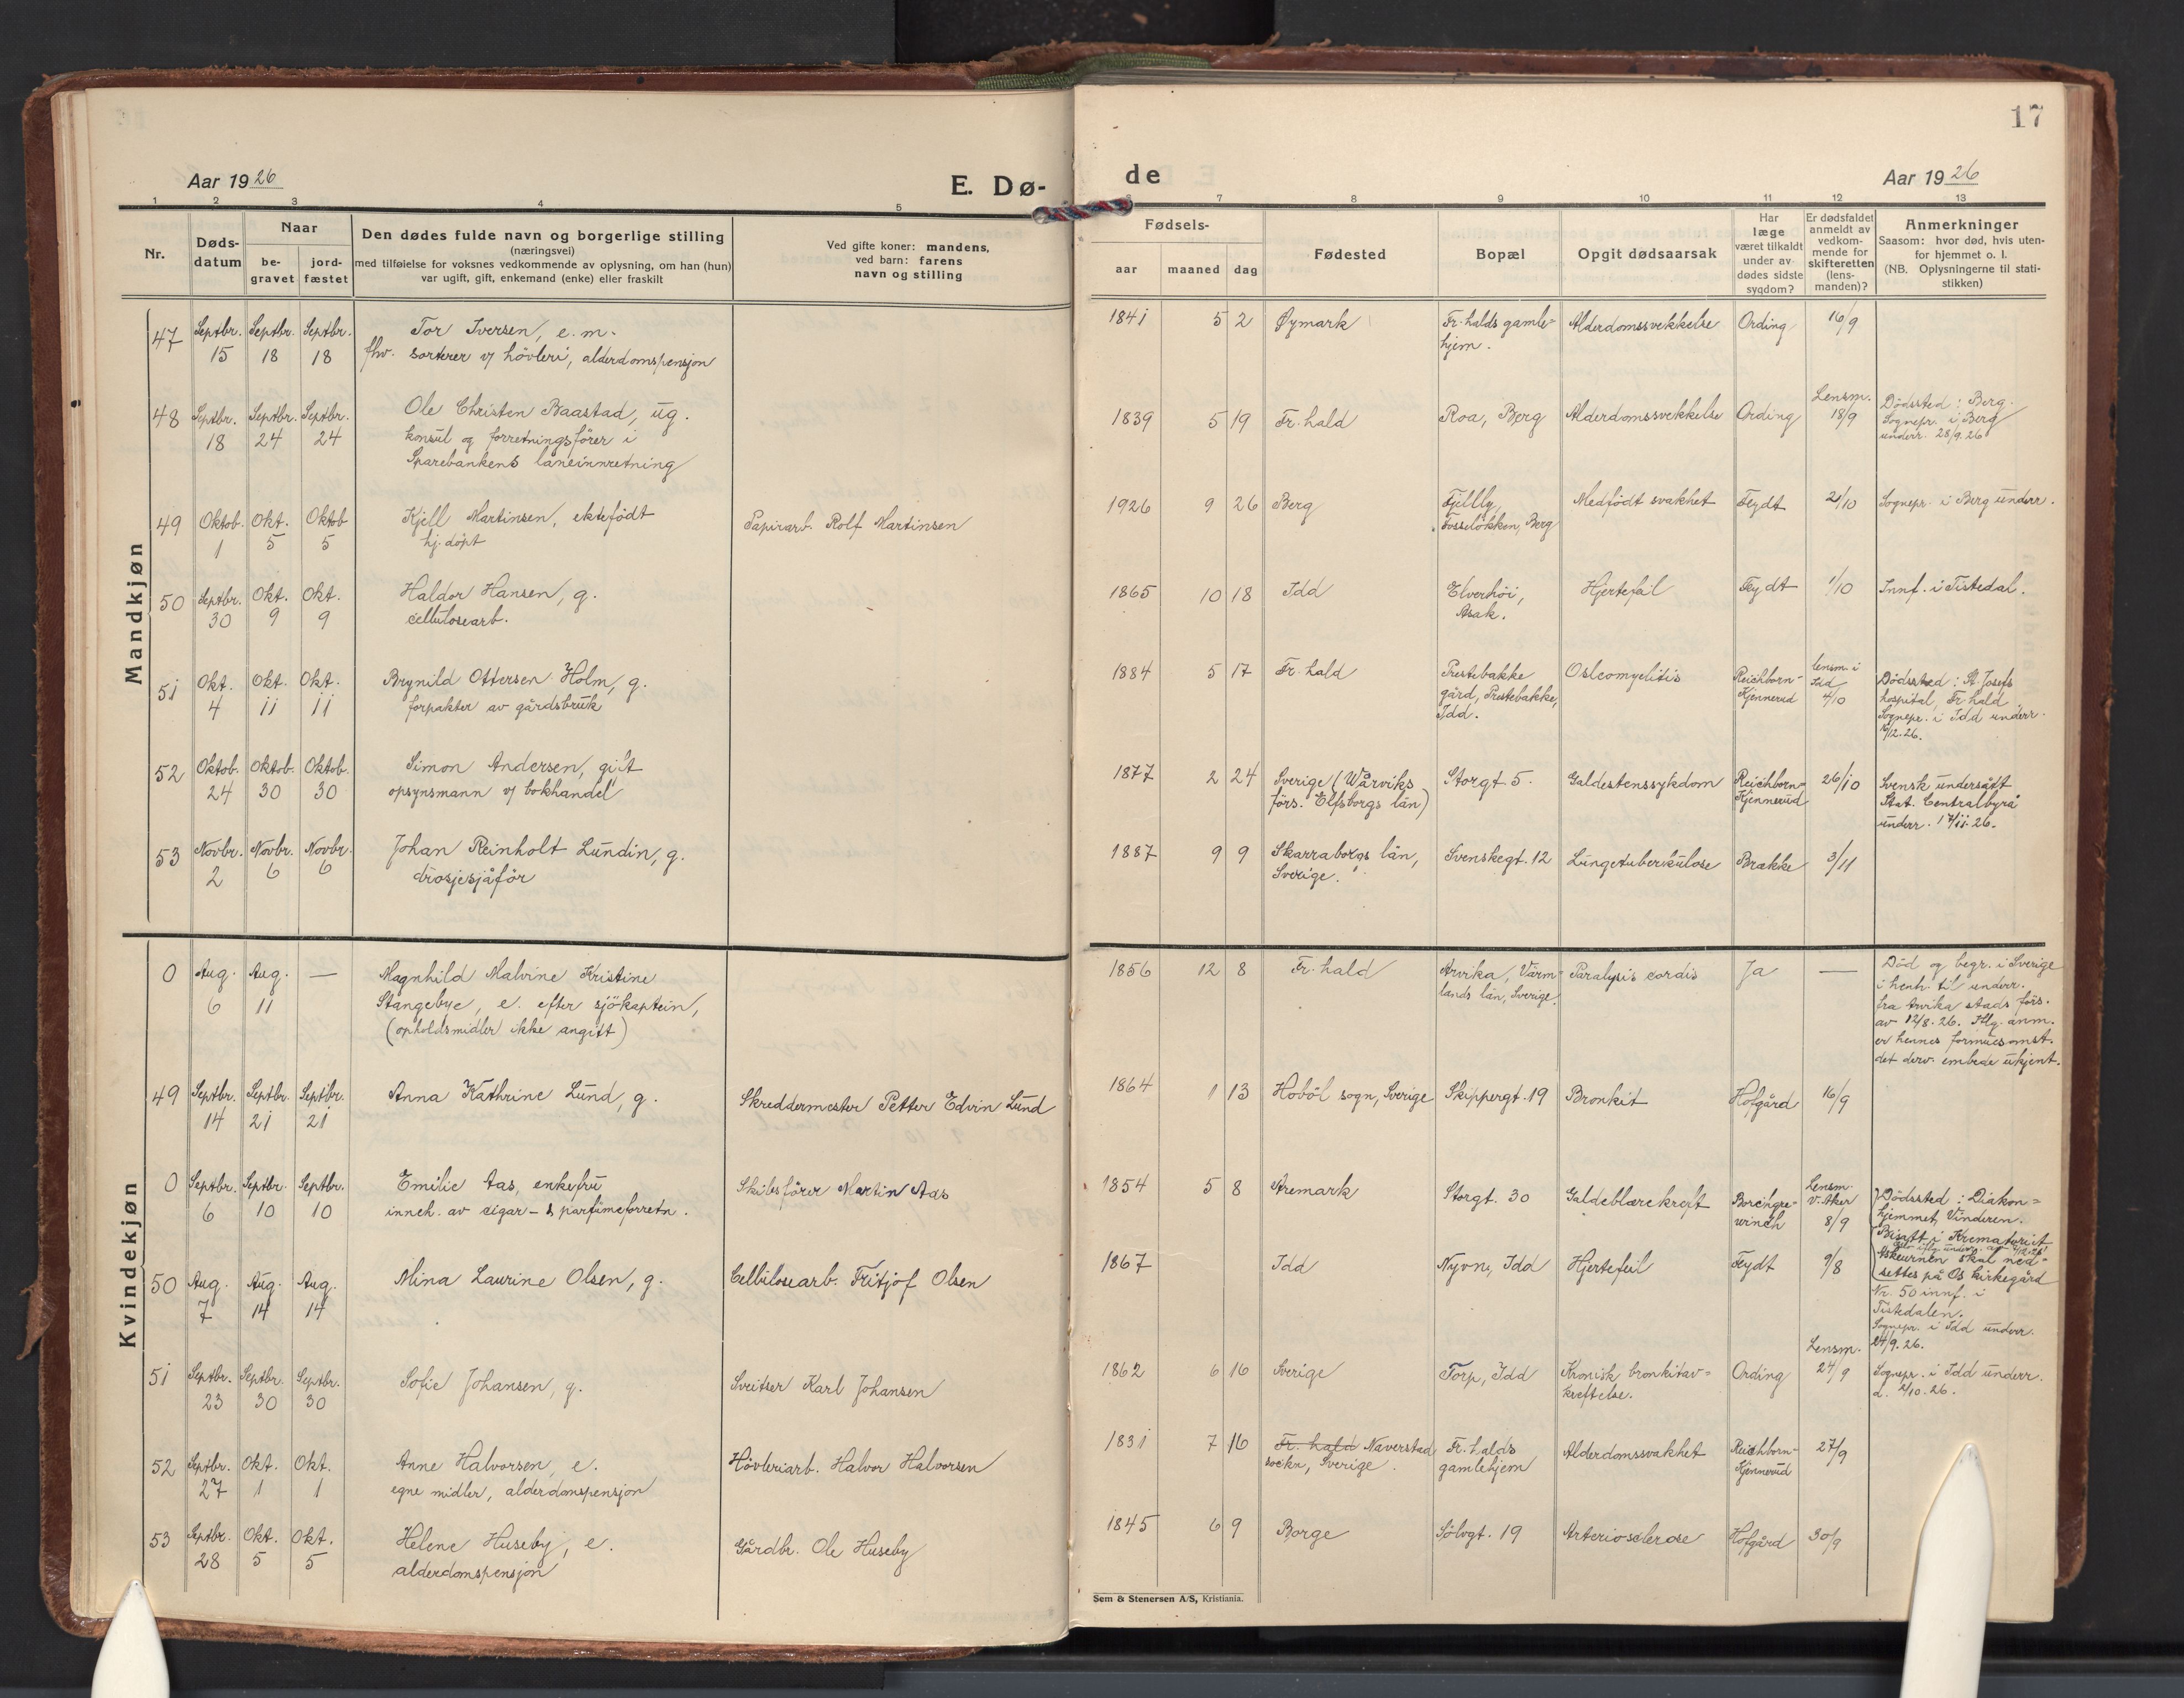 17
Aar 1926
E. Dø-
de
Aar 1926
1 2 3 4 5
7 8 9 10 11 12 13
Nr.
Døds-
datum
Naar
be-
gravet
jord-
fæstet
Den dødes fulde navn og borgerlige stilling
(næringsvei)
med tilføielse for voksnes vedkommende av oplysning, om han (hun)
var ugift, gift, enkemand (enke) eller fraskilt
Ved gifte koner: mandens,
ved barn: farens
navn og stilling
Fødsels-
aar maaned dag
Fødested
Bopæl
Opgit dødsaarsak
Har
læge
været tilkaldt
under av-
dødes sidste
sygdom?
Er dødsfaldet
anmeldt av
vedkom-
mende for
skifteretten
(lens-
manden)?
Anmerkninger
Saasom: hvor død, hvis uten-
for hjemmet o. l.
(NB. Oplysningerne til stati-
stikken)
Mandkjøn
47 Septbr. Septbr. Septbr. Tor Iversen, e. m.
15 18 18 fhv. sorterer v/ hövleri, alderdomspensjon
1841 5 2 Øymark Fr.halds gamle= Alderdomssvekkelse Ording 16/9
hjem.
48 Septbr. Septbr. Septbr. Ole Christen Baastad, ug.
18 24 24 konsul og forretningsförer i
Sparebankens låneinnretning
1839 5 19 Fr.hald Roa, Berg Alderdomssvekkelse Ording Lensm.
18/9
Dödssted: Berg.
Sognepr. i Berg
underr. 28/9.26
49 Oktob. Okt. Oktob Kjell Martinsen, ektefödt Papirarb. Rolf Martinsen
1 5 5 hj. döpt
1926 9 26 Berg Fjellly, Medfödt svakhet Feydt 2/10 Sognepr. i Berg underr.
Fosselökken, Berg
50 Septbr. Okt. Okt. Haldor Hansen, g.
30 9 9 cellulosearb.
1865 10 18 Idd Elverhöi, Hjertefeil Feydt 1/10 Innf. i Tistedal.
Asak.
51 Okt. Okt. Okt. Brynild Ottersen Holm, g.
4 11 11 forpakter av gårdsbruk
1884 5 17 Fr.hald Prestebakke Osteomyelitis Reichborn- lensm. i
gård, Prestebakke, Kjennerud Idd
Idd. 4/10
Dödssted: St. Josefs
hospital, Fr.hald
Sognepr. i Idd underr.
/12.26.
52 Oktob. Oktob. Oktob. Simon Andersen, gift
24 30 30 opsynsmann v/ bokhandel
1877 2 24 Sverige (Wårviks Storgt. 5. Galdestenssykdom Reichborn= 26/10
förs. Elfsborgs län) Kjennerud
Svensk undersått
Stat. Centralbyrå
underr. /11.26.
53 Novbr. Novbr. Novbr. Johan Reinholt Lundin, g.
2 6 6 drosjesjåför
1887 9 9 Skarraborgs län, Svenskegt. 12 Lungetuberkulose Brække 3/11
Sverige.
Kvindekjøn
0 Aug. Aug. — Magnhild Malvine Kristine
6 11 Stangebye, e. efter sjökaptein,
(opholdsmidler ikke angitt)
1856 12 8 Fr.hald Arvika, Värm- Paralysis cordis Ja —
lands län, Sverige.
Död og begr. i Sverige
i henh. til underr.
fra Arvika stads förs.
av 12/8.26. Iflg. anm.
er hennes formuesomst.
det derv. embede ukjent.
49 Septbr. Septbr. Septbr. Anna Kathrine Lund, g. Skreddermester Petter Edvin Lund
14 21 21
1864 1 13 Hoböl sogn, Sverige Skippergt. 19 Bronkit Hofgård 16/9
0 Septbr. Septbr. Septbr. Emilie Aas, enkefru Skibsförer Martin Aas
6 10 10 inneh. av cigar- & parfümeforretn.
1854 5 8 Aremark Storgt. 30 Galdeblærekreft Borchgre- Lensm.
winch V. Aker
8/9
Dödssted: Diakon=
hjemmet, Vinderen.
Bisatt i Krematoriet
Askeurnen skal ned-
settes på Os kirkegård
50 Aug. Aug. Aug. Mina Laurine Olsen, g. Cellulosearb. Fritjof Olsen
7 14 14
1867 Idd Nyvn, Idd Hjertefeil Feydt 9/8
Nr. 50 innf. i
Tistedalen.
Sognepr. i Idd underr.
24/9.26.
51 Septbr. Septbr. Septbr. Sofie Johansen, g. Sveitser Karl Johansen
23 30 30
1862 6 16 Sverige Torp, Idd Kronisk bronkit av= Ording Lensm.
kreftelse. 24/9
Sognepr. i Idd underr.
d. 2/10.26.
52 Septbr. Okt. Okt. Anne Halvorsen, e. Hövleriarb. Halvor Halvorsen
27 1 1 egne midler, alderdomspensjon
1831 7 16 Fr.hald Naverstad Fr.halds Alderdomssvakhet Reichborn- 27/9
sockn, Sverige. gamlehjem Kjennerud
53 Septbr. Okt. Okt. Helene Huseby, e. Gårdbr. Ole Huseby
28 5 5 alderdomspensjon
1845 6 9 Borge Sölvgt. 19 Arteriosclerose Hofgård 30/9
Sem & Stenersen A/S, Kristiania.